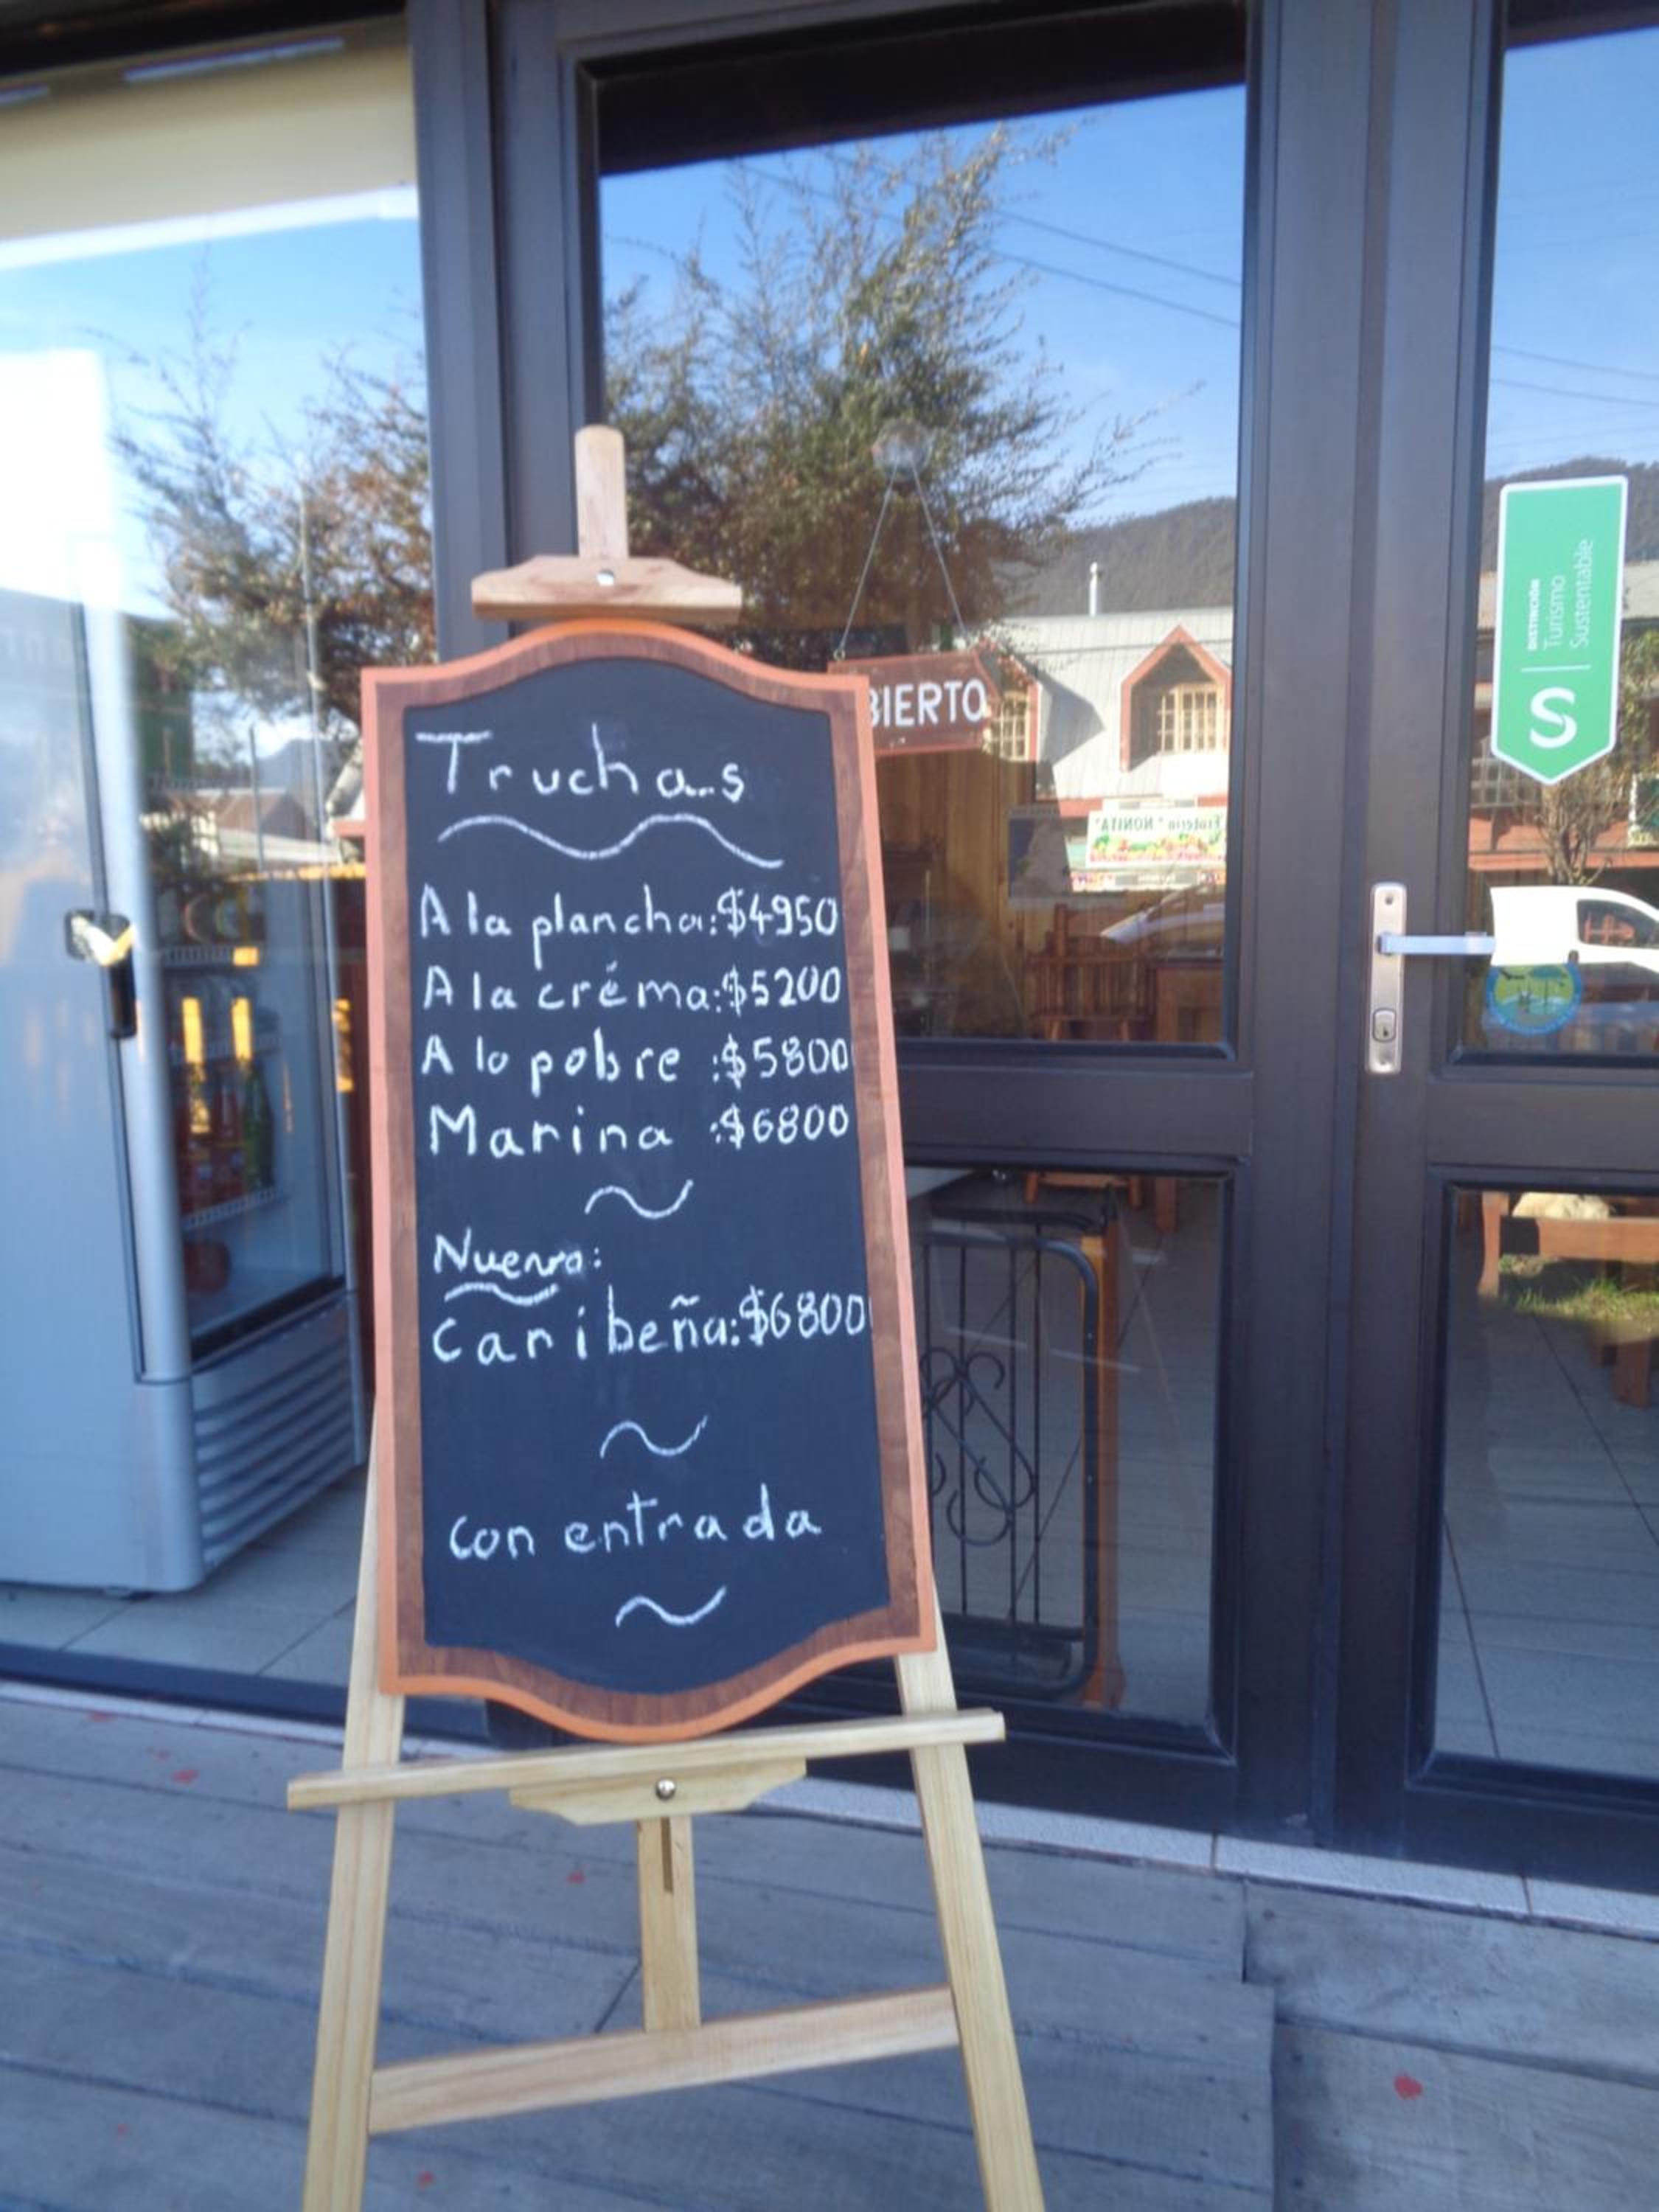 Truchas
A la plancha:$4950
A la créma:$5200
A lo pobre :$5800
Marina :$6800
Nuevo:
Caribeña:$6800
con entrada
BIERTO
DISTINCIÓN
Turismo
Sustentable
S
Frutería "NONITA"